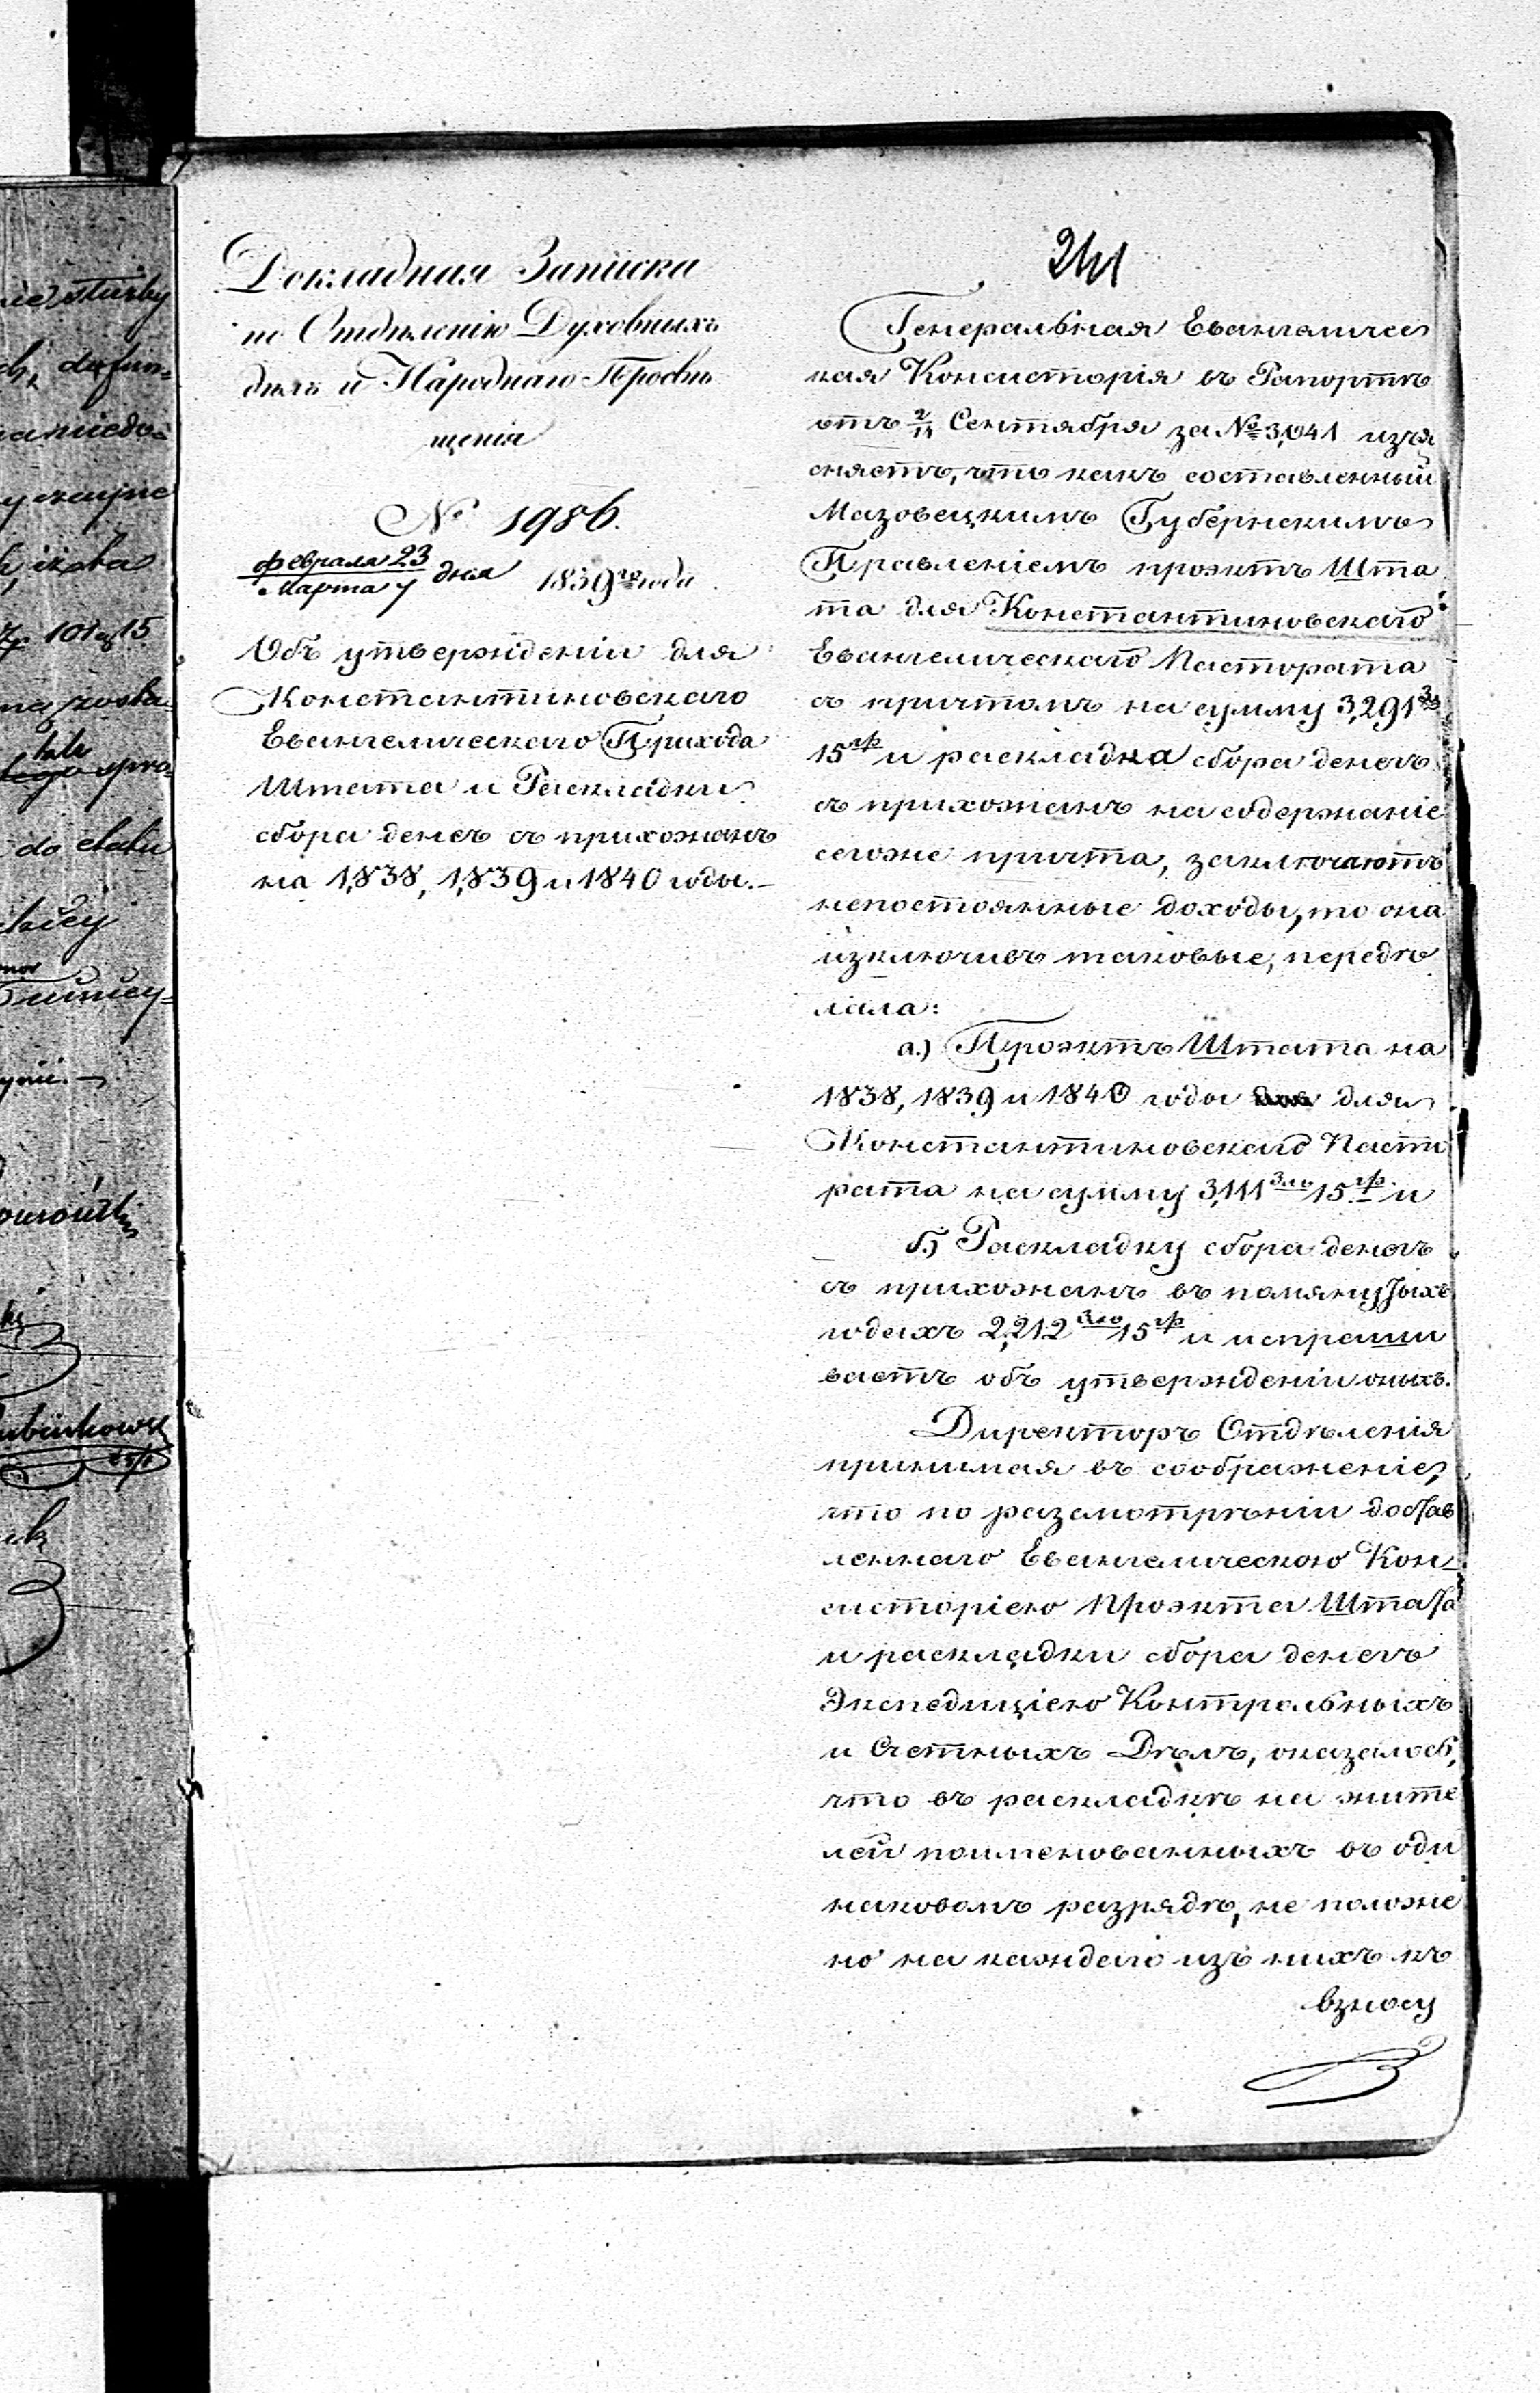 Докладная Записка
по Отдѣленію Духовныхъ
дѣлъ и Народнаго Просвѣ
щенія
№ 1986.
Февраля 23
Марта 7 дня 1839го года
Объ утвержденіи для
Константиновскаго
Евангелическаго Прихода
Штата и Раскладки
сбора денегъ съ прихожанъ
на 1,838, 1,839 и 1840 годы.—
241
Генеральная Евангеличес
кая Консисторія въ Рапортѣ
отъ 2/14 Сентября за № 3,041 изъя
сняетъ, что какъ составленный
Мазовецкимъ Губернскимъ
Правленіемъ проэктъ Шта
та для Константиновскаго
Евангелическаго Пастората
съ причтомъ на сумму 3,291 Зл
15 гр и раскладка сбора денегъ
съ прихожанъ на содержаніе
сегоже причта, заключаютъ
непостоянные доходы, то она
изключивъ таковые, передѣ
лала:
а.) Проэктъ Штата на
1838, 1839 и 1840 годы для
Константиновскаго Пасто
рата на сумму 3,111 Зло 15 гр. и
б.) Раскладку сбора денегъ
съ прихожанъ въ помянутыхъ
годахъ 2,212 Зло 15 гр и испраши
ваетъ объ утвержденіи оныхъ.
Директоръ Отдѣленія
принимая въ соображеніе,
что по разсмотрѣніи достав
леннаго Евангелическою Кон
систоріею Проэкта Штата
и раскладки сбора денегъ
Экспедиціею Контрольныхъ
и Счетныхъ Дѣлъ, оказалось,
что въ раскладкѣ на жите
лей поименованныхъ въ оди
наковомъ разрядѣ, не положе
но на каждаго изъ нихъ къ
взносу